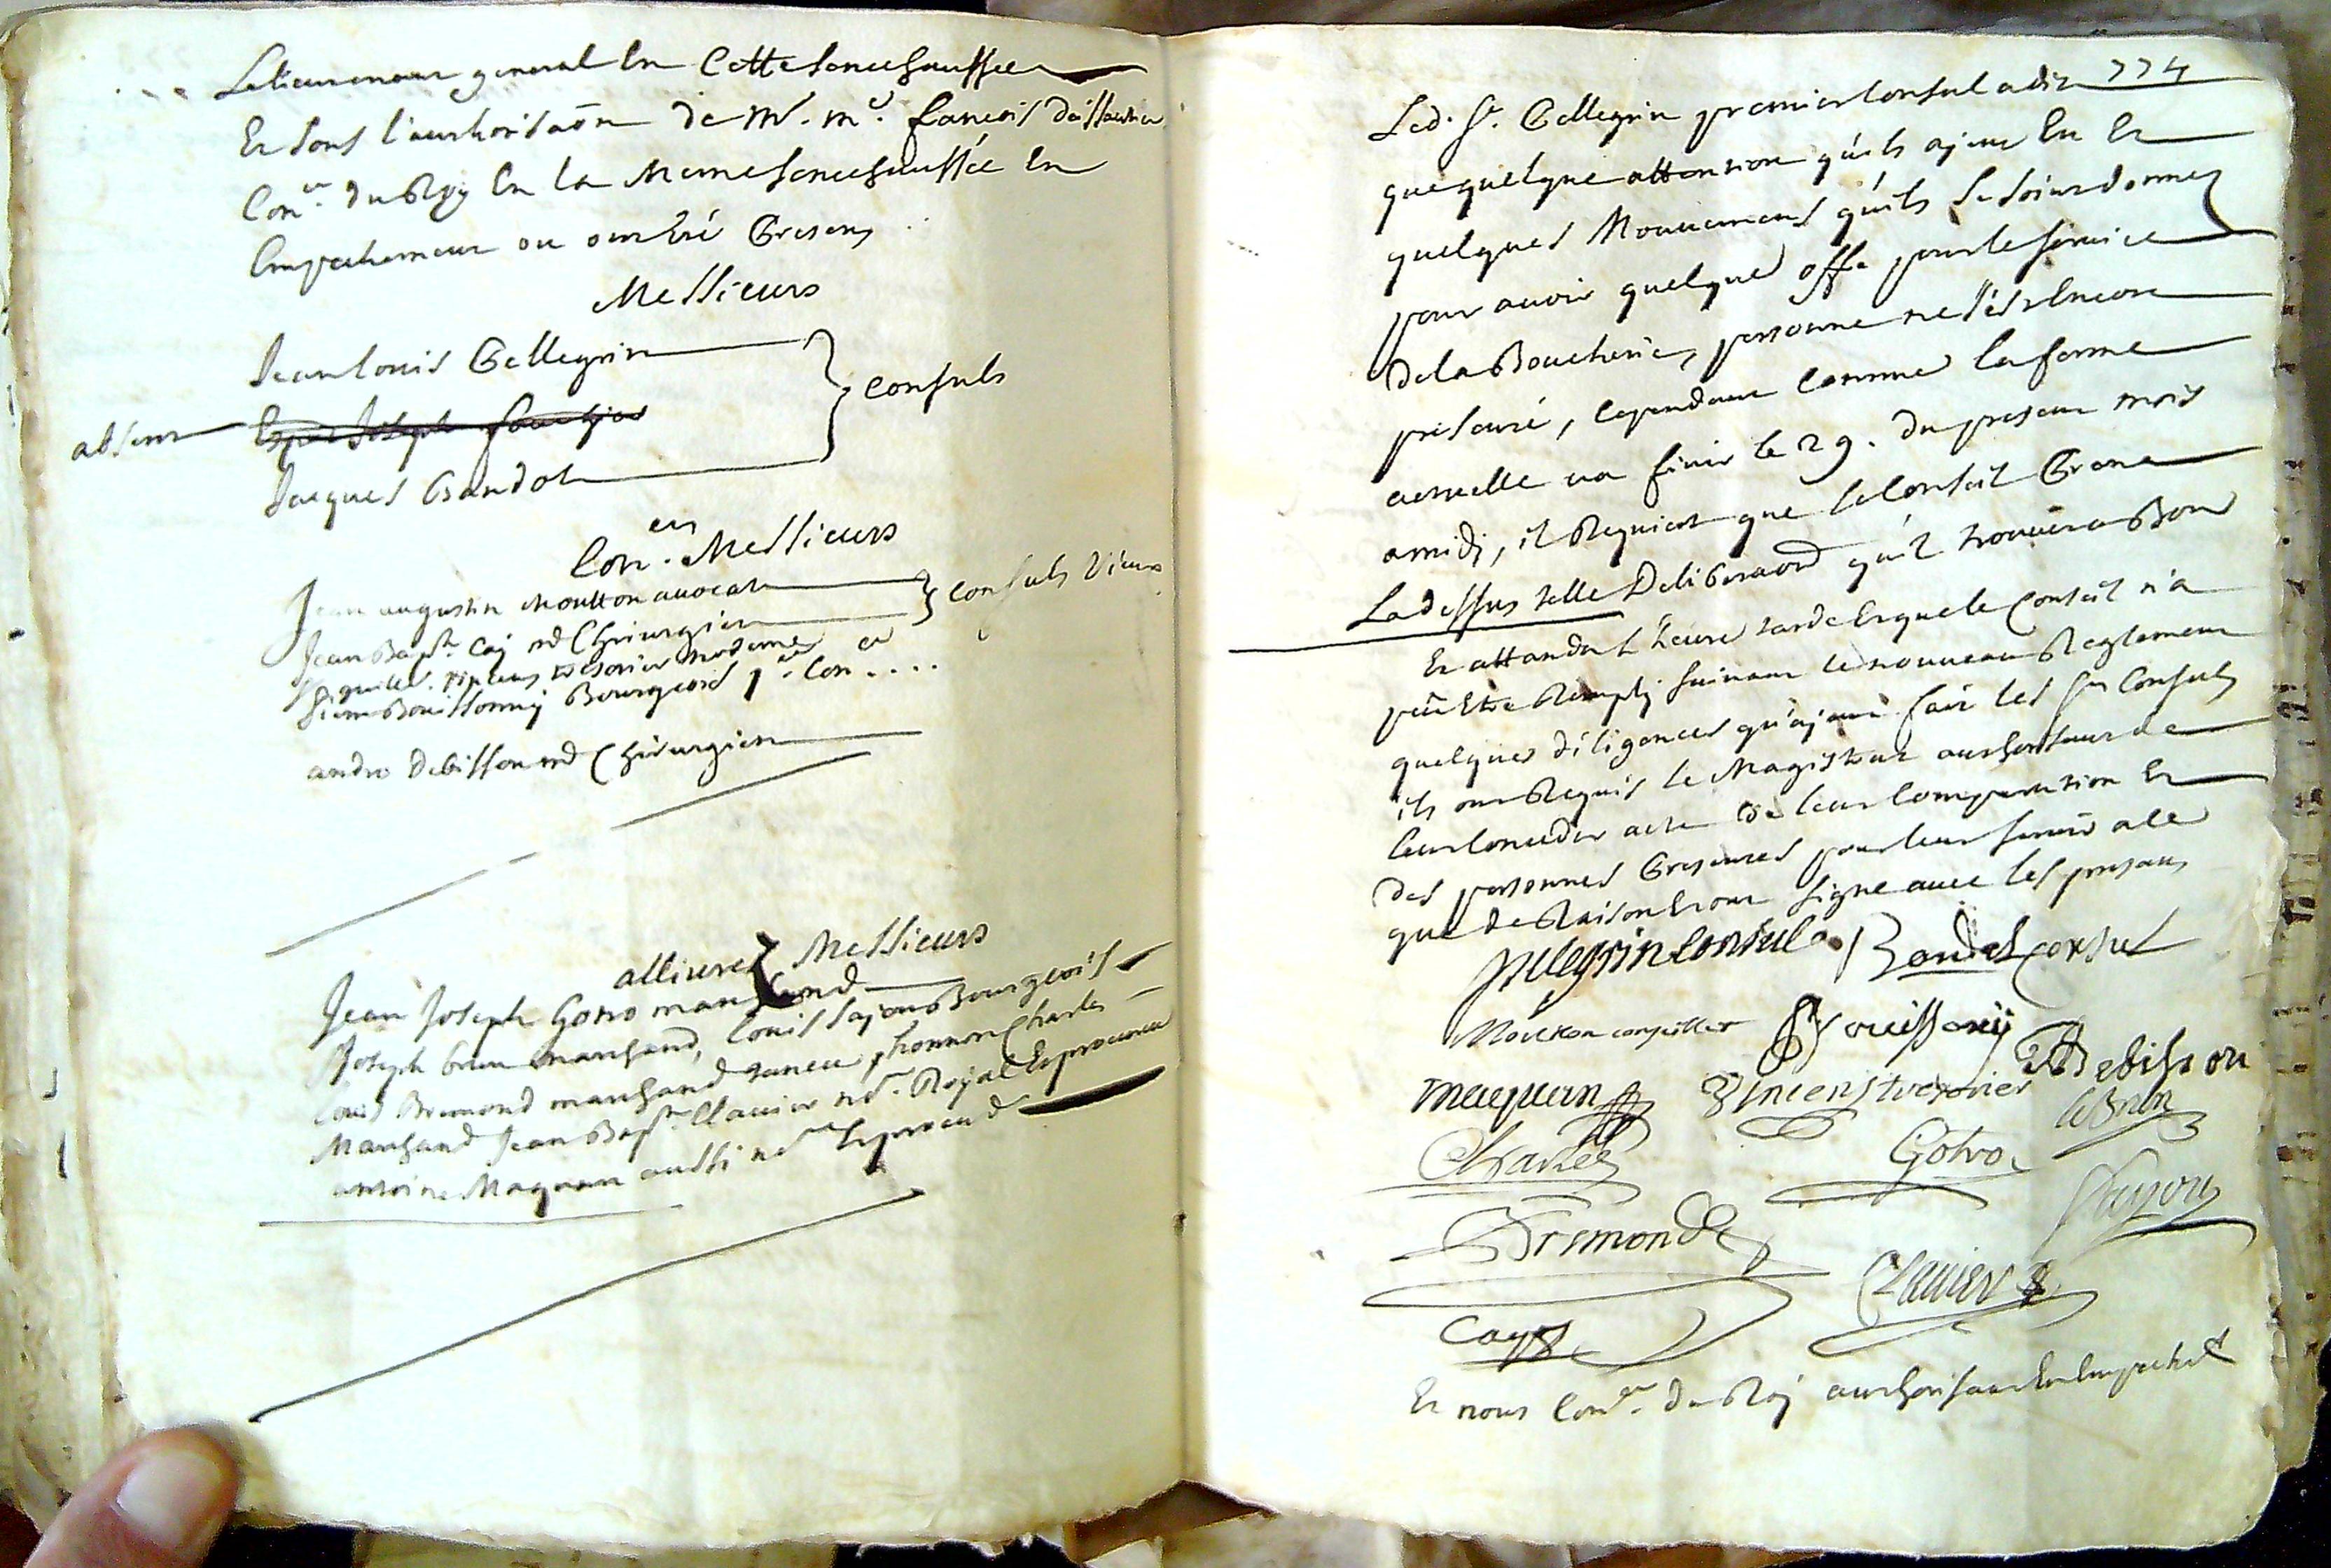 Lelieutenant general En Cette senechaussée
Et sous l'authorisaôn de mr. me. francois
Conr. du Roy En la Meme senechaussée En
Empechement ou ont été Presens
Messieurs
Jean louis Pellegrin
absent
Jacques Bandol
consuls
Coners. Messieurs
Jean augustin Moutton avocat
Jean Bapte. Caÿ md Chirurgien
consuls Vieux
tresorier moderne
Bouissonnÿ Bourgeois 1er. Coner....
andre debisson md Chirurgien
allivrez Messieurs
Jean Joseph Gotro marchand
Joseph brun marchand, louis sajou Bourgeois
louis Bremond marchand honnoré Charles
Marchand Jean Bapte. Clavier nore. Royal Et procureur
antoine Maquan aussi nore Et procur
274
Led. Sr. Pellegrin premier Consul a dit
que quelque attention qu'ils ayent Eu Et
quelques Mouvemens qu'ils se soient donnez
pour avoir quelque offre pour le service
de la Boucherie, personne ne s'est Encore
presenté, cependant Comme la ferme
actuelle va finir le 29. du present mois
a midi, il Requiert que le Conseil Prene
La dessus telle Deliberaôn qu'il trouvera Bon
Et attandu L'heure tarde Et que le Conseil n'a
peu Etre Remply suivant le nouveau Reglement
quelques diligences qu'ayent fait les srs Consuls
ils ont Requis le Magistrat authorisant de
leur Conceder acte de leur Comparution Et
des personnes Presentes pour leur servir a ce
que de Raison Et ont signe avec les presans
pellegrin consul Bandol consul
Moutton conseiller Bouissonÿ
Debisson
maquan Vincens tresorier
leBrun
Charles Gotro
Sajou
Bremond
Clavier
Cay
Et nous Coner. du Roy authorisant En Empechet